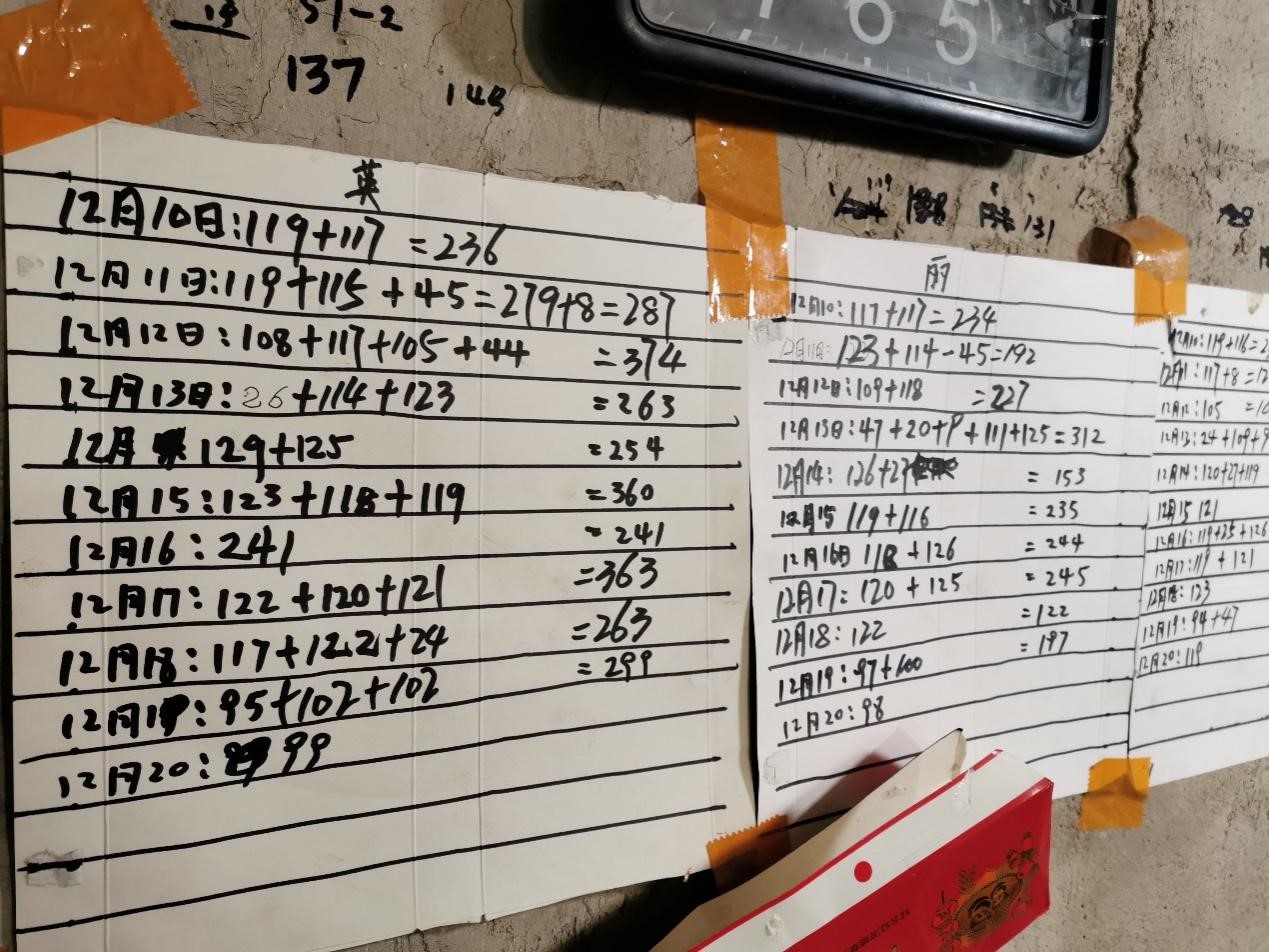 51-2
137
148
7 6 5
英
12月10日:119+117 =236
12月11日:119+115+45=279+8=287
12月12日:108+117+105+44 =374
12月13日:26+114+123 =263
12月 129+125 =254
12月15:123+118+119 =360
12月16:241 =241
12月17:122+120+121 =363
12月18:117+122+24 =263
12月19:95+102+102 =299
12月20: 99
131
丽
12月10:117+117=234
12月11日:123+114-45=192
12月12日:109+118 =227
12月13日:47+20+9+111+125=312
12月14:126+27 =153
12月15 119+116 =235
12月16日 118+126 =244
12月17:120+125 =245
12月18:122 =122
12月19:97+100 =197
12月20:98
12月10:119+116=2
12月11:117+8=12
12月12:105 =10
12月13:24+109+9
12月14:120+27+119
12月15 121
12月16:119+25+126
12月17:119+121
12月18:123
12月19:94+47
12月20:119